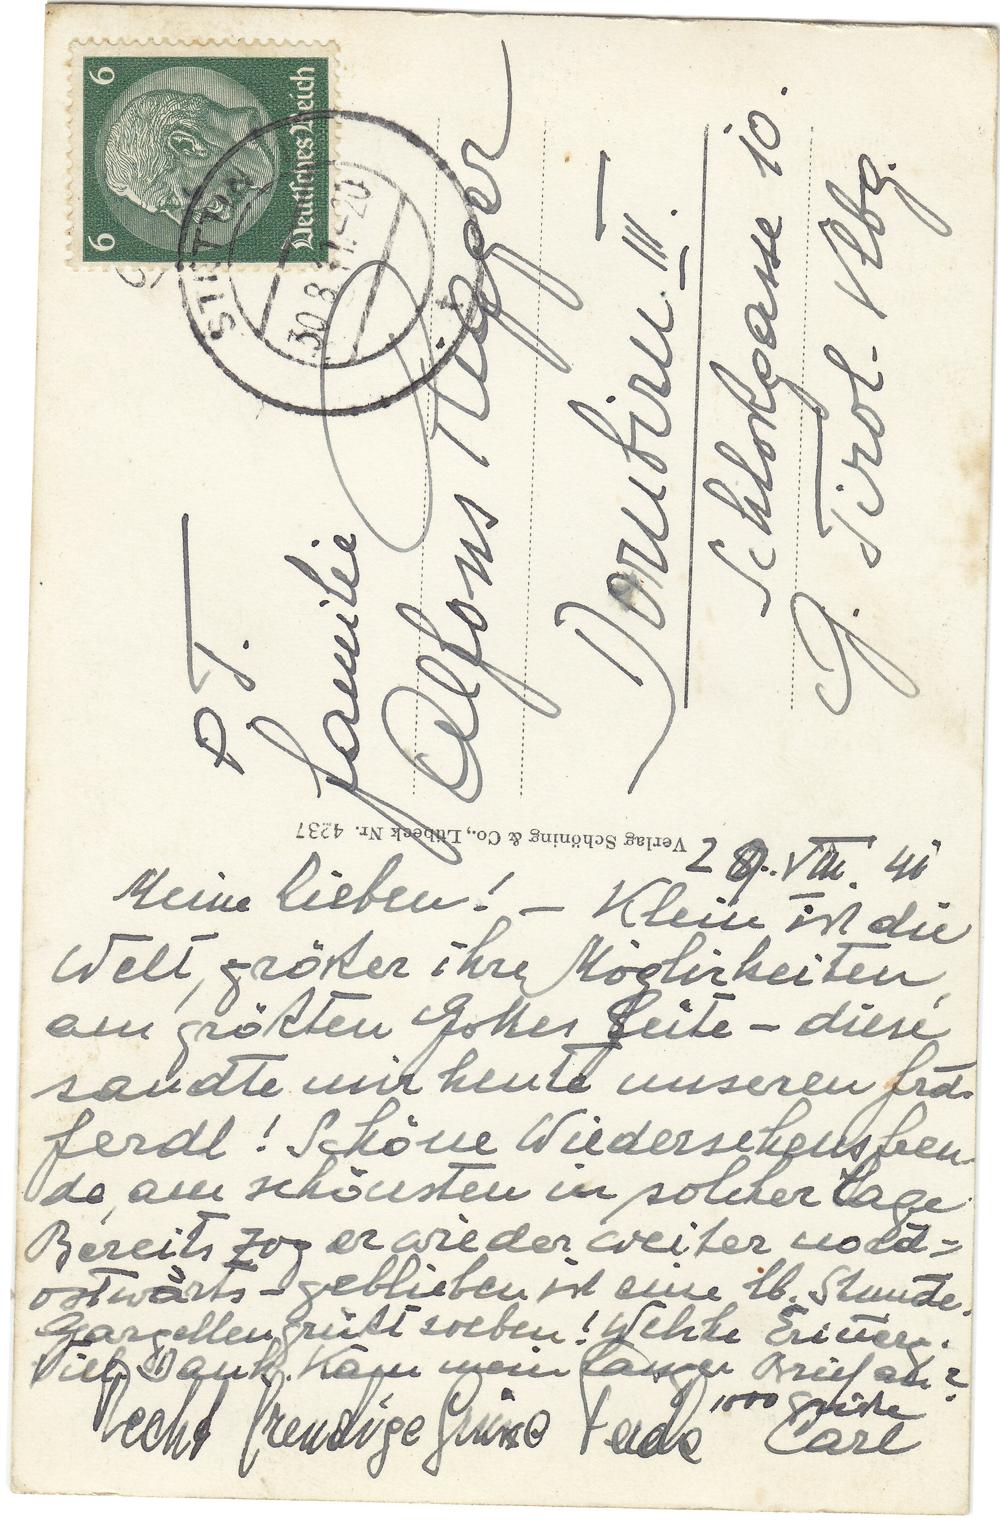 6
6
Deutsches Reich
STETTIN
30.8.41.-20
P. T.
Familie
Alfons Rüger
Dornbirn III.
Schloßgasse 10.
G. Tirol-Vlbg.
Verlag Schöning & Co., Lübeck Nr. 4237
29. VIII. 41
Meine Lieben! – Klein ist die
Welt, größer ihre Möglichkeiten,
am größten Gottes Seite – diese
sandte mir heute unseren
Ferdl! Schöne Wiedersehensfreu-
de, am schönsten in solcher Lage.
Bereits zog er wieder weiter nord=
ostwärts – geblieben ist eine lb. Stunde.
Gargellen grüßt soeben! Welche Erinnerg.
Viel Dank. Kam mein langer Brief an?
1000 Grüße
Recht freudige Grüsse Ferde Carl